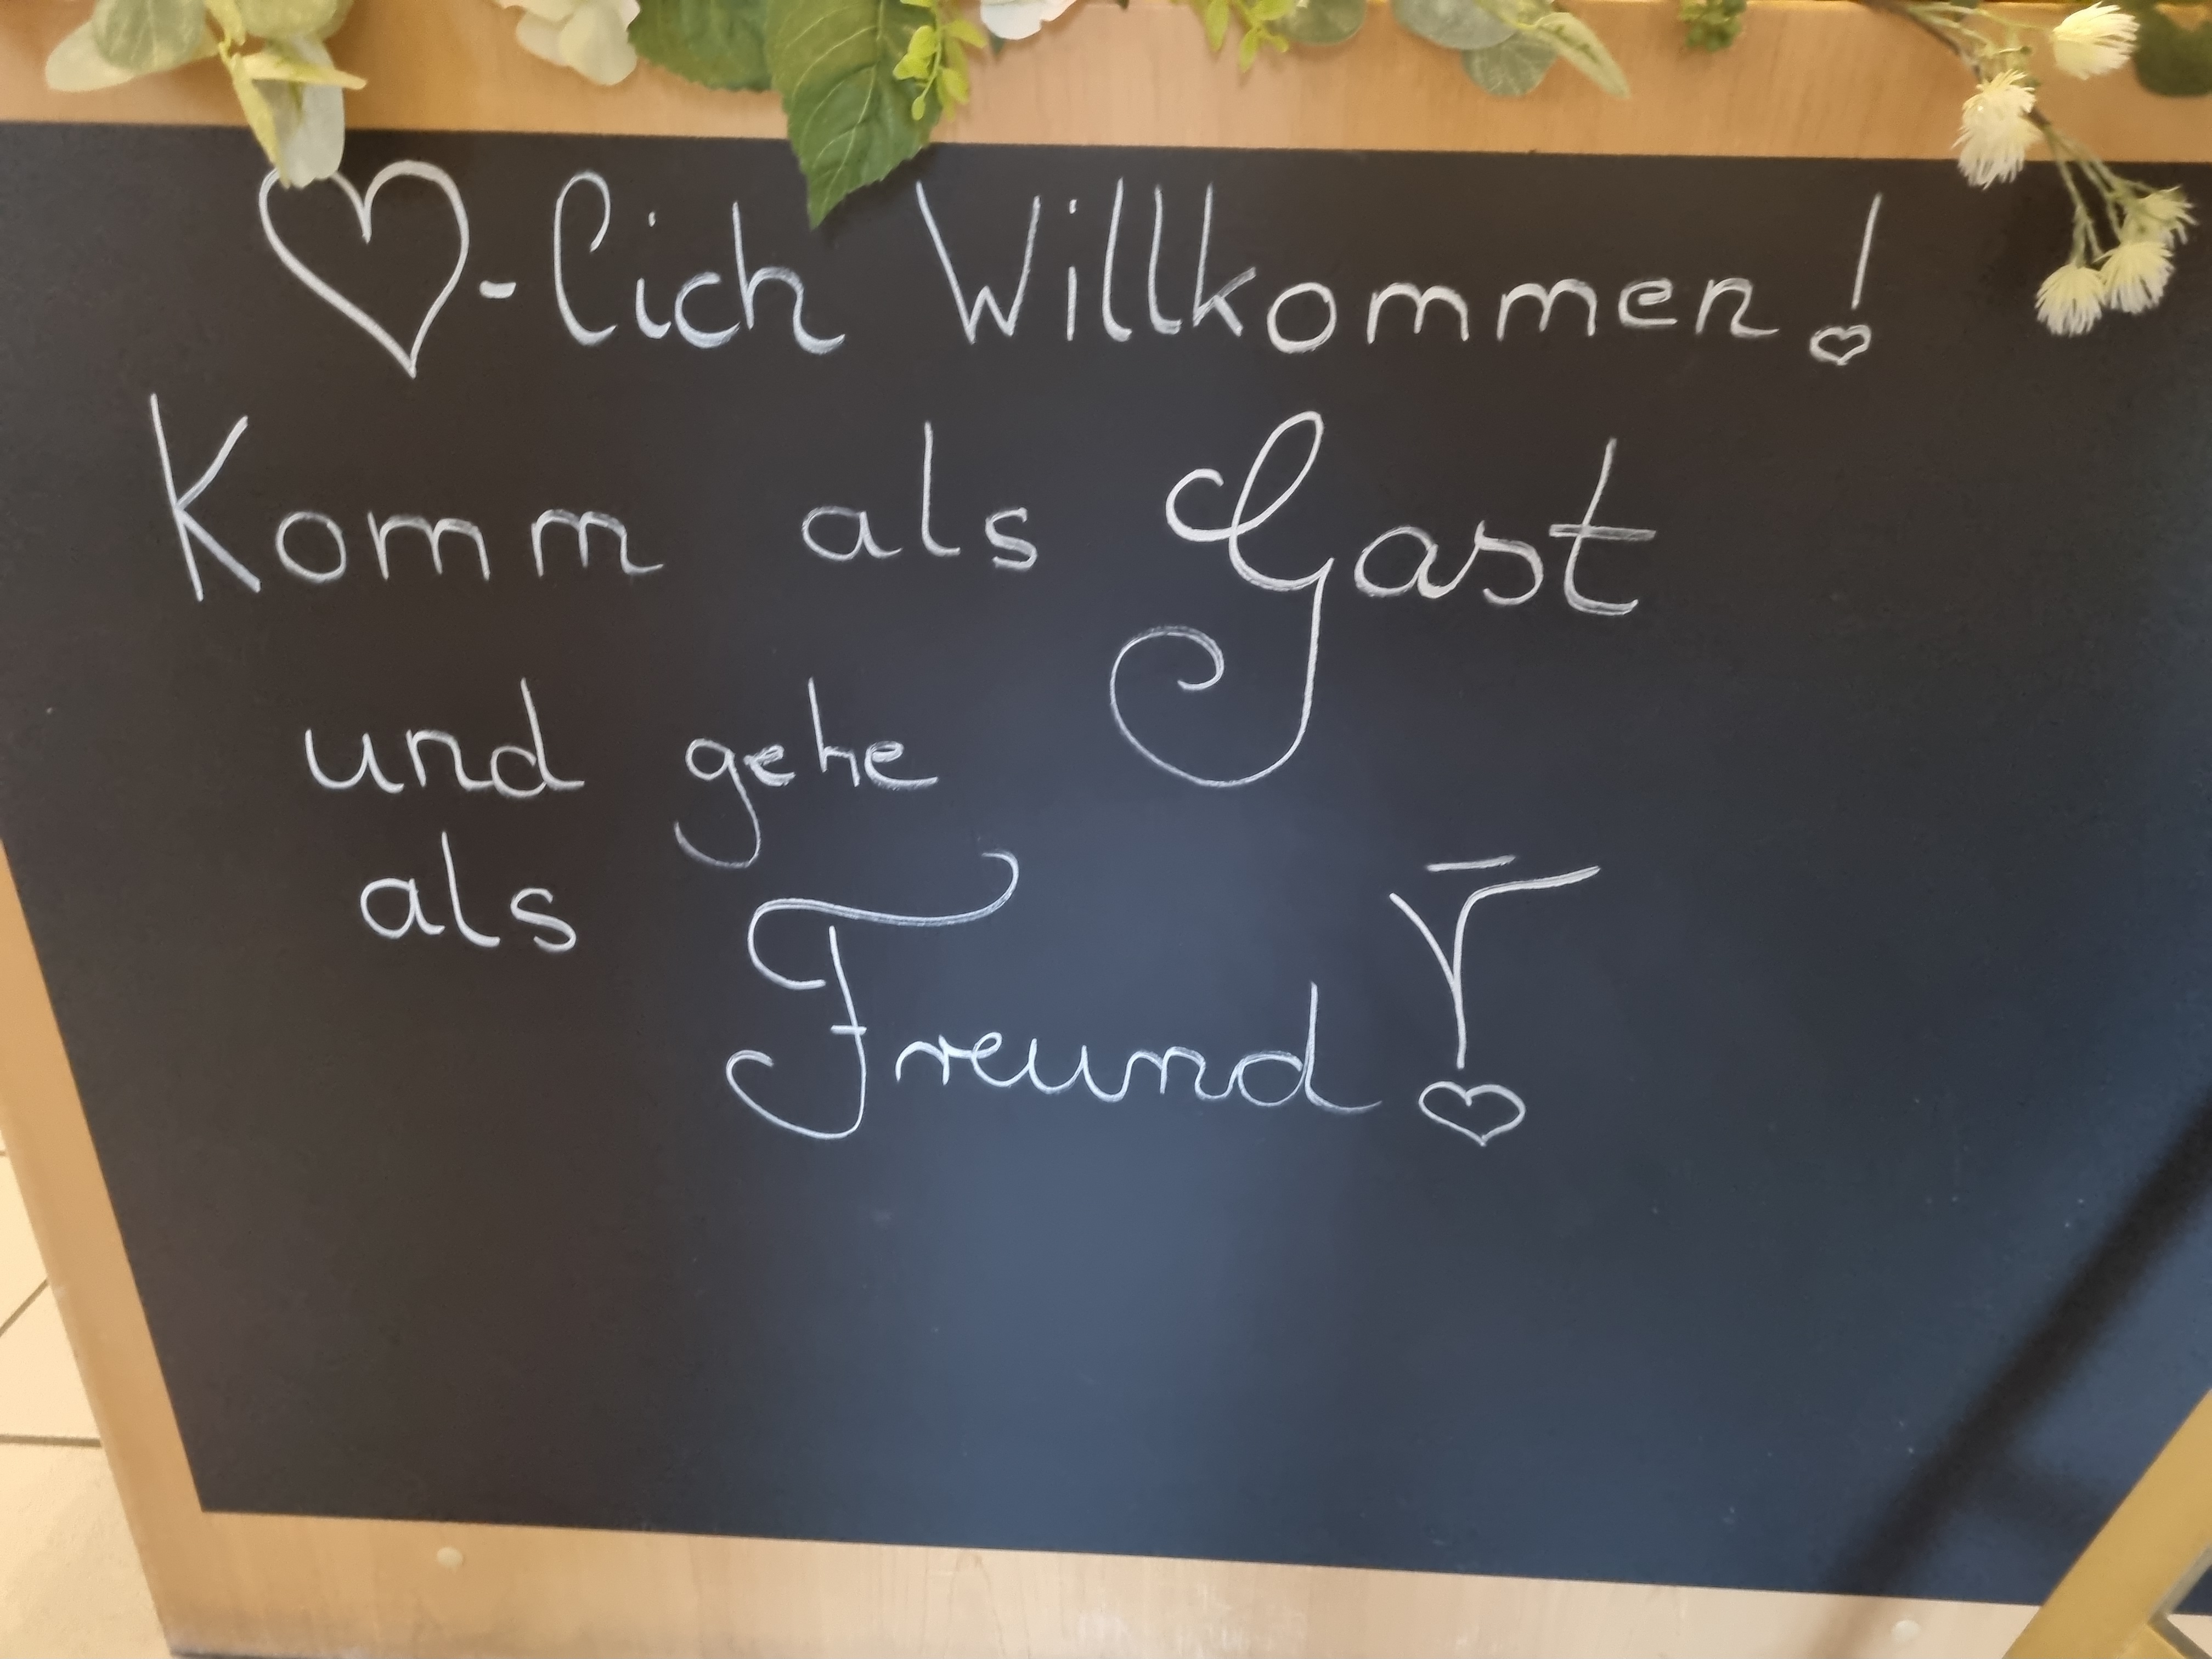 ♡-lich Willkommen!
Komm als Gast
und gehe
als
Freund!